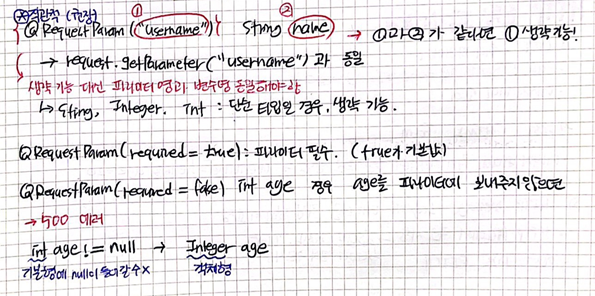 ☆직관적 (권장) ①
@RequestParam("username") String name ② → ①과 ②가 같다면 ① 생략가능!
→ request.getParameter("username")과 동일
생략 가능 대신 파라미터명과 변수명 동일해야함
↳ String, Integer. int : 단순 타입일 경우, 생략 가능.
@RequestParam(required = true): 파라미터 필수. (true가 기본값)
@RequestParam(required = false) int age 경우 age를 파라미터에 보내주지 않으면
→ 500 에러
int age != null → Integer age
기본형에 null이 들어갈 수 X 객체형